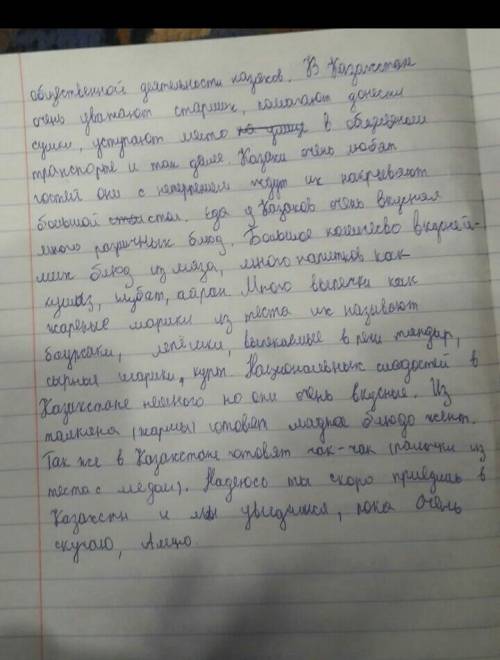 общественной деятельности казахов. В Казахстане
очень уважают старших, помагают донести
сумки, уступают место на улице в общественом
транспорте и так далее. Казахи очень любят
гостей они с нетерпением ждут их накрывают
большой стол. Еда у Казахов очень вкусная
много различных блюд. Большое количево вкусней-
ших блюд из мяса, много напитков как
кумыз, шубат, айран. Много выпечки как
жареные шарики из теста их называют
баурсаки, лепёшки, выпекаемые в печи тандыр,
сырные шарики, курт. Национальных сладостей в
Казахстане немного но они очень вкусные. Из
талкана (жармы) готовят сладкое блюдо жент.
Так же в Казахстане готовят чак-чак (палочки из
теста с мёдом). Надеюсь ты скоро приедешь в
Казахстн и мы увидимся, пока очень
скучаю,